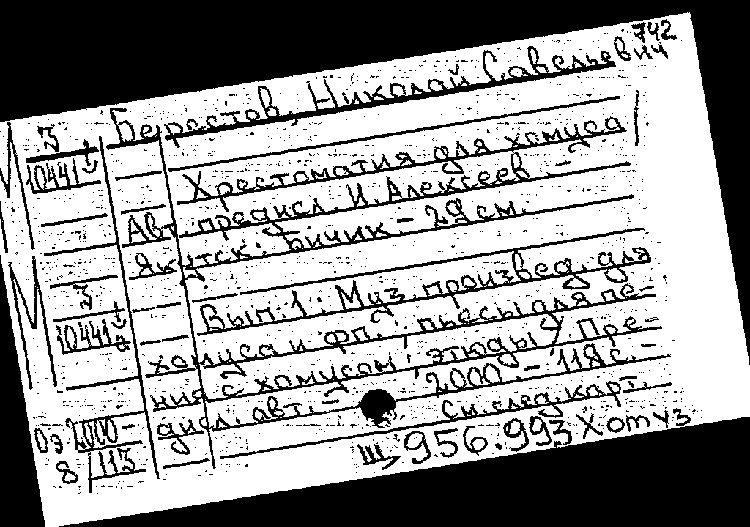 742
Берестов, Николай Савельевич
М З
10441
Хрестоматия для хомуса /
Авт. предисл. И. Алексеев. –
Якутск: Бичик – 29 см.
М З
10441
Вып. 1: Муз. произвед. для
хомуса и фп.; пьесы для пе-
ния с хомусом; этюды / Пре-
дисл. авт. – 2000. – 118 с. –
См. след. карт.
Оэ 2000-
8/113
956.993 Хомуз